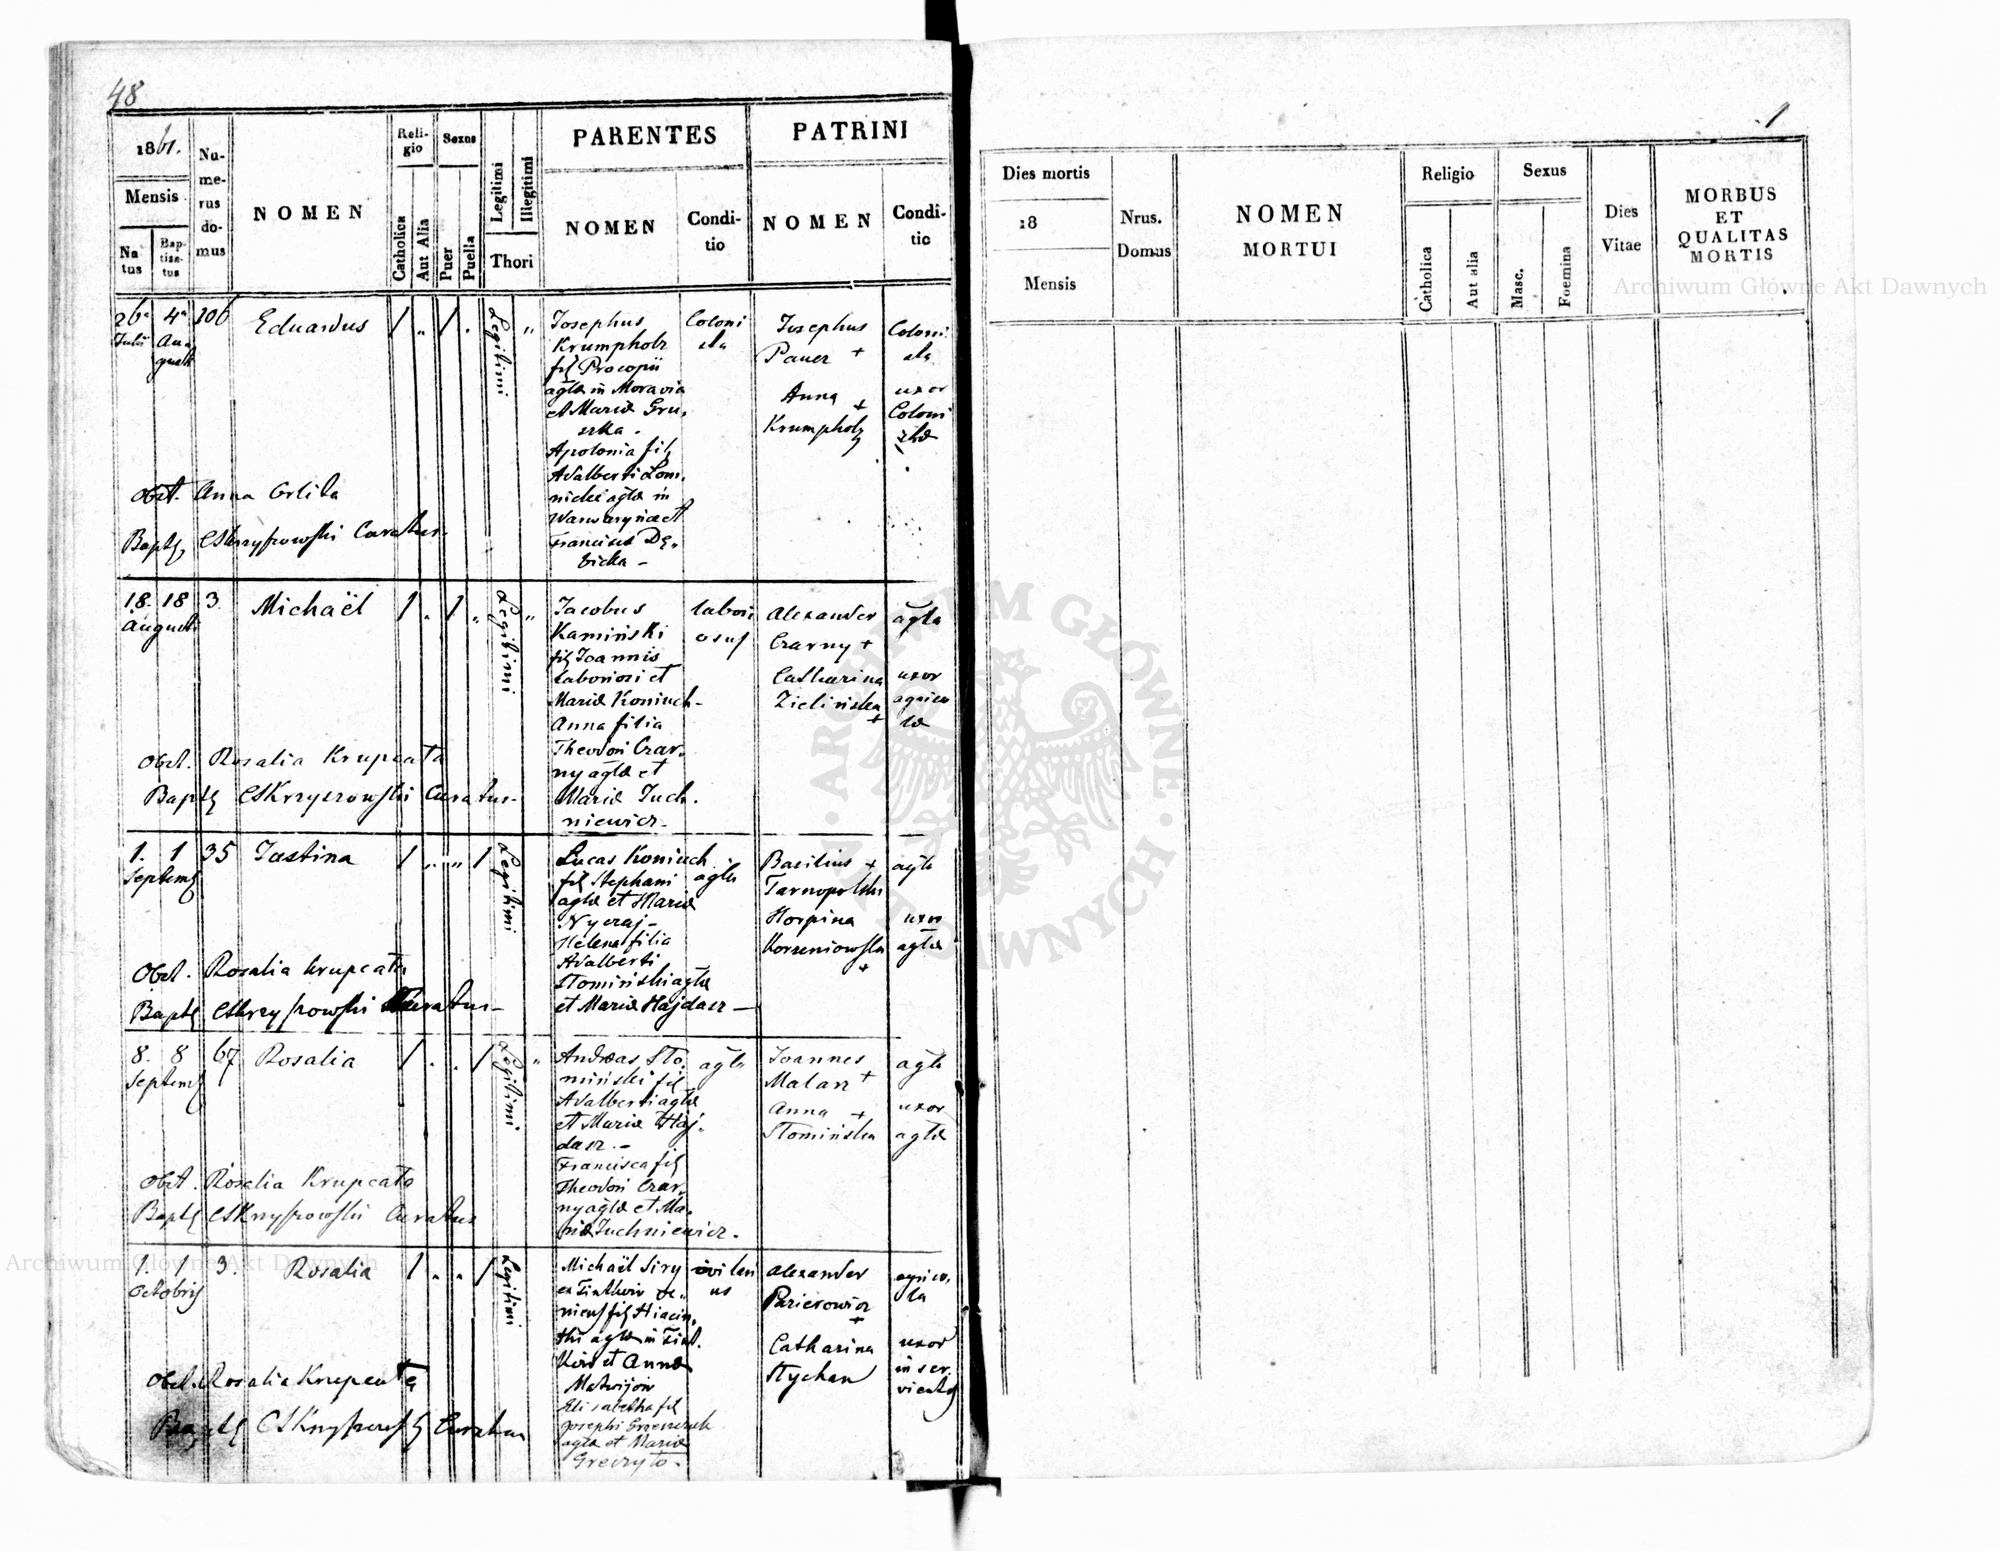 48
1861.
Mensis
Na
tus
Bap-
tisa-
tus
Nu-
me-
rus
do-
mus
NOMEN
Reli-
gio
Catholica
Aut Alia
Sexus
Puer
Puella
Legitimi
Illegitimi
Thori
PARENTES
NOMEN
Condi-
tio
PATRINI
NOMEN
Condi-
tio
26a 4a 106 Eduardus 1 „ 1 .
Julii Au
gusti
Legitimi „
Josephus
Krumpholz
fil Procopii
agłæ in Moravia
et Mariæ Gru,
szka .
Apolonia fil
Adalberti Lom,
nicki agłæ in
Warwaryńce et
Francisca Dę,
bicka –
Coloni
sta
Josephus
Pauer +
Anna +
Krumpholz
Coloni
sta
uxor
Coloni
stæ
Obst. Anna Orlita
Bapt. CSkrzyszowski Curatus.
18. 18 3. Michaël 1 . 1 „
Augusti
Legitimi „
Jacobus
Kamiński
fil Joannis
laboriosi et
Mariæ Koniuch –
Anna filia
Theodori Czar,
ny agłæ et
Mariæ Juch,
niewicz –
labori
osus
Alexander
Czarny +
Catharina
Zielińska
+
agła
uxor
agrico
læ
Obst. Rosalia Krupcata
Bapt. CSKrzyszowski Curatus –
1. 1 35 Justina 1 „ „ 1
Septemb
Legitimi
Lucas Koniuch
fil Stephani
agłæ et Mariæ
Nyczaj –
Helena filia
Adalberti
Słomiński agłæ
et Mariæ Hajdasz –
agła
Basilius +
Tarnopolski
Horpina
Korzeniowska
+
agła
uxor
agłæ
Obst. Rosalia Krupcata
Bapt. CSkrzyszowski Curatus –
8. 8 67 Rosalia 1 . . 1
Septemb
Legitimi „
Andreas Sło,
miński fil
Adalberti agłæ
et Mariæ Haj,
dasz . –
Francisca fil
Theodori Czar,
ny agłæ et Ma,
riæ Juchniewicz .
agła
Joannes
Malarz +
Anna +
Słomińska
agła
uxor
agłæ
Obst. Rosalia Krupcata
Bapt. CSKrzyszowski Curatus
1. 1 3. Rosalia 1 . . 1
Octobris
Legitimi
Michaël Siry
fil Hiacin,
thi agłæ in
et Annæ
Matwijow
Elisabetha fil
Josephi
agłæ et Mariæ
Alexander
+
Catharina
Stychan
agrico,
la
uxor
inser,
vientis
Obst. Rosalia Krupcata
Bapt. Curatus
1
Dies mortis
18
Mensis
Nrus.
Domus
NOMEN
MORTUI
Religio
Catholica
Aut alia
Sexus
Masc.
Foemina
Dies
Vitae
MORBUS
ET
QUALITAS
MORTIS
Archiwum Główne Akt Dawnych
ARCHIWUM GŁÓWNE
AKT DAWNYCH
Archiwum Główne Akt Dawnych